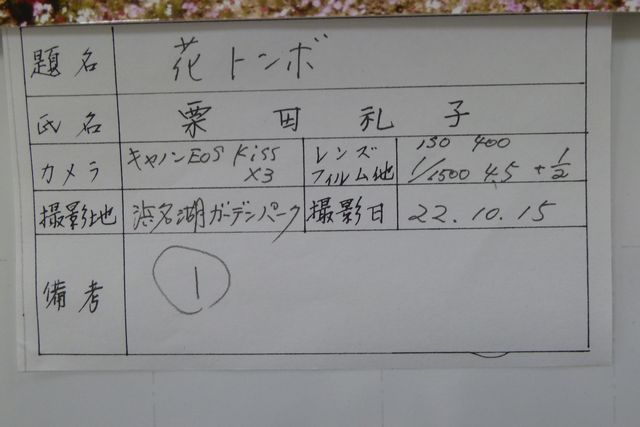 題名 花トンボ
氏名 栗田礼子
カメラ キャノンEOS Kiss X3
レンズ フィルム他 130 400 1/1500 4.5 +1/2
撮影地 浜名湖ガーデンパーク 撮影日 22.10.15
備考 1